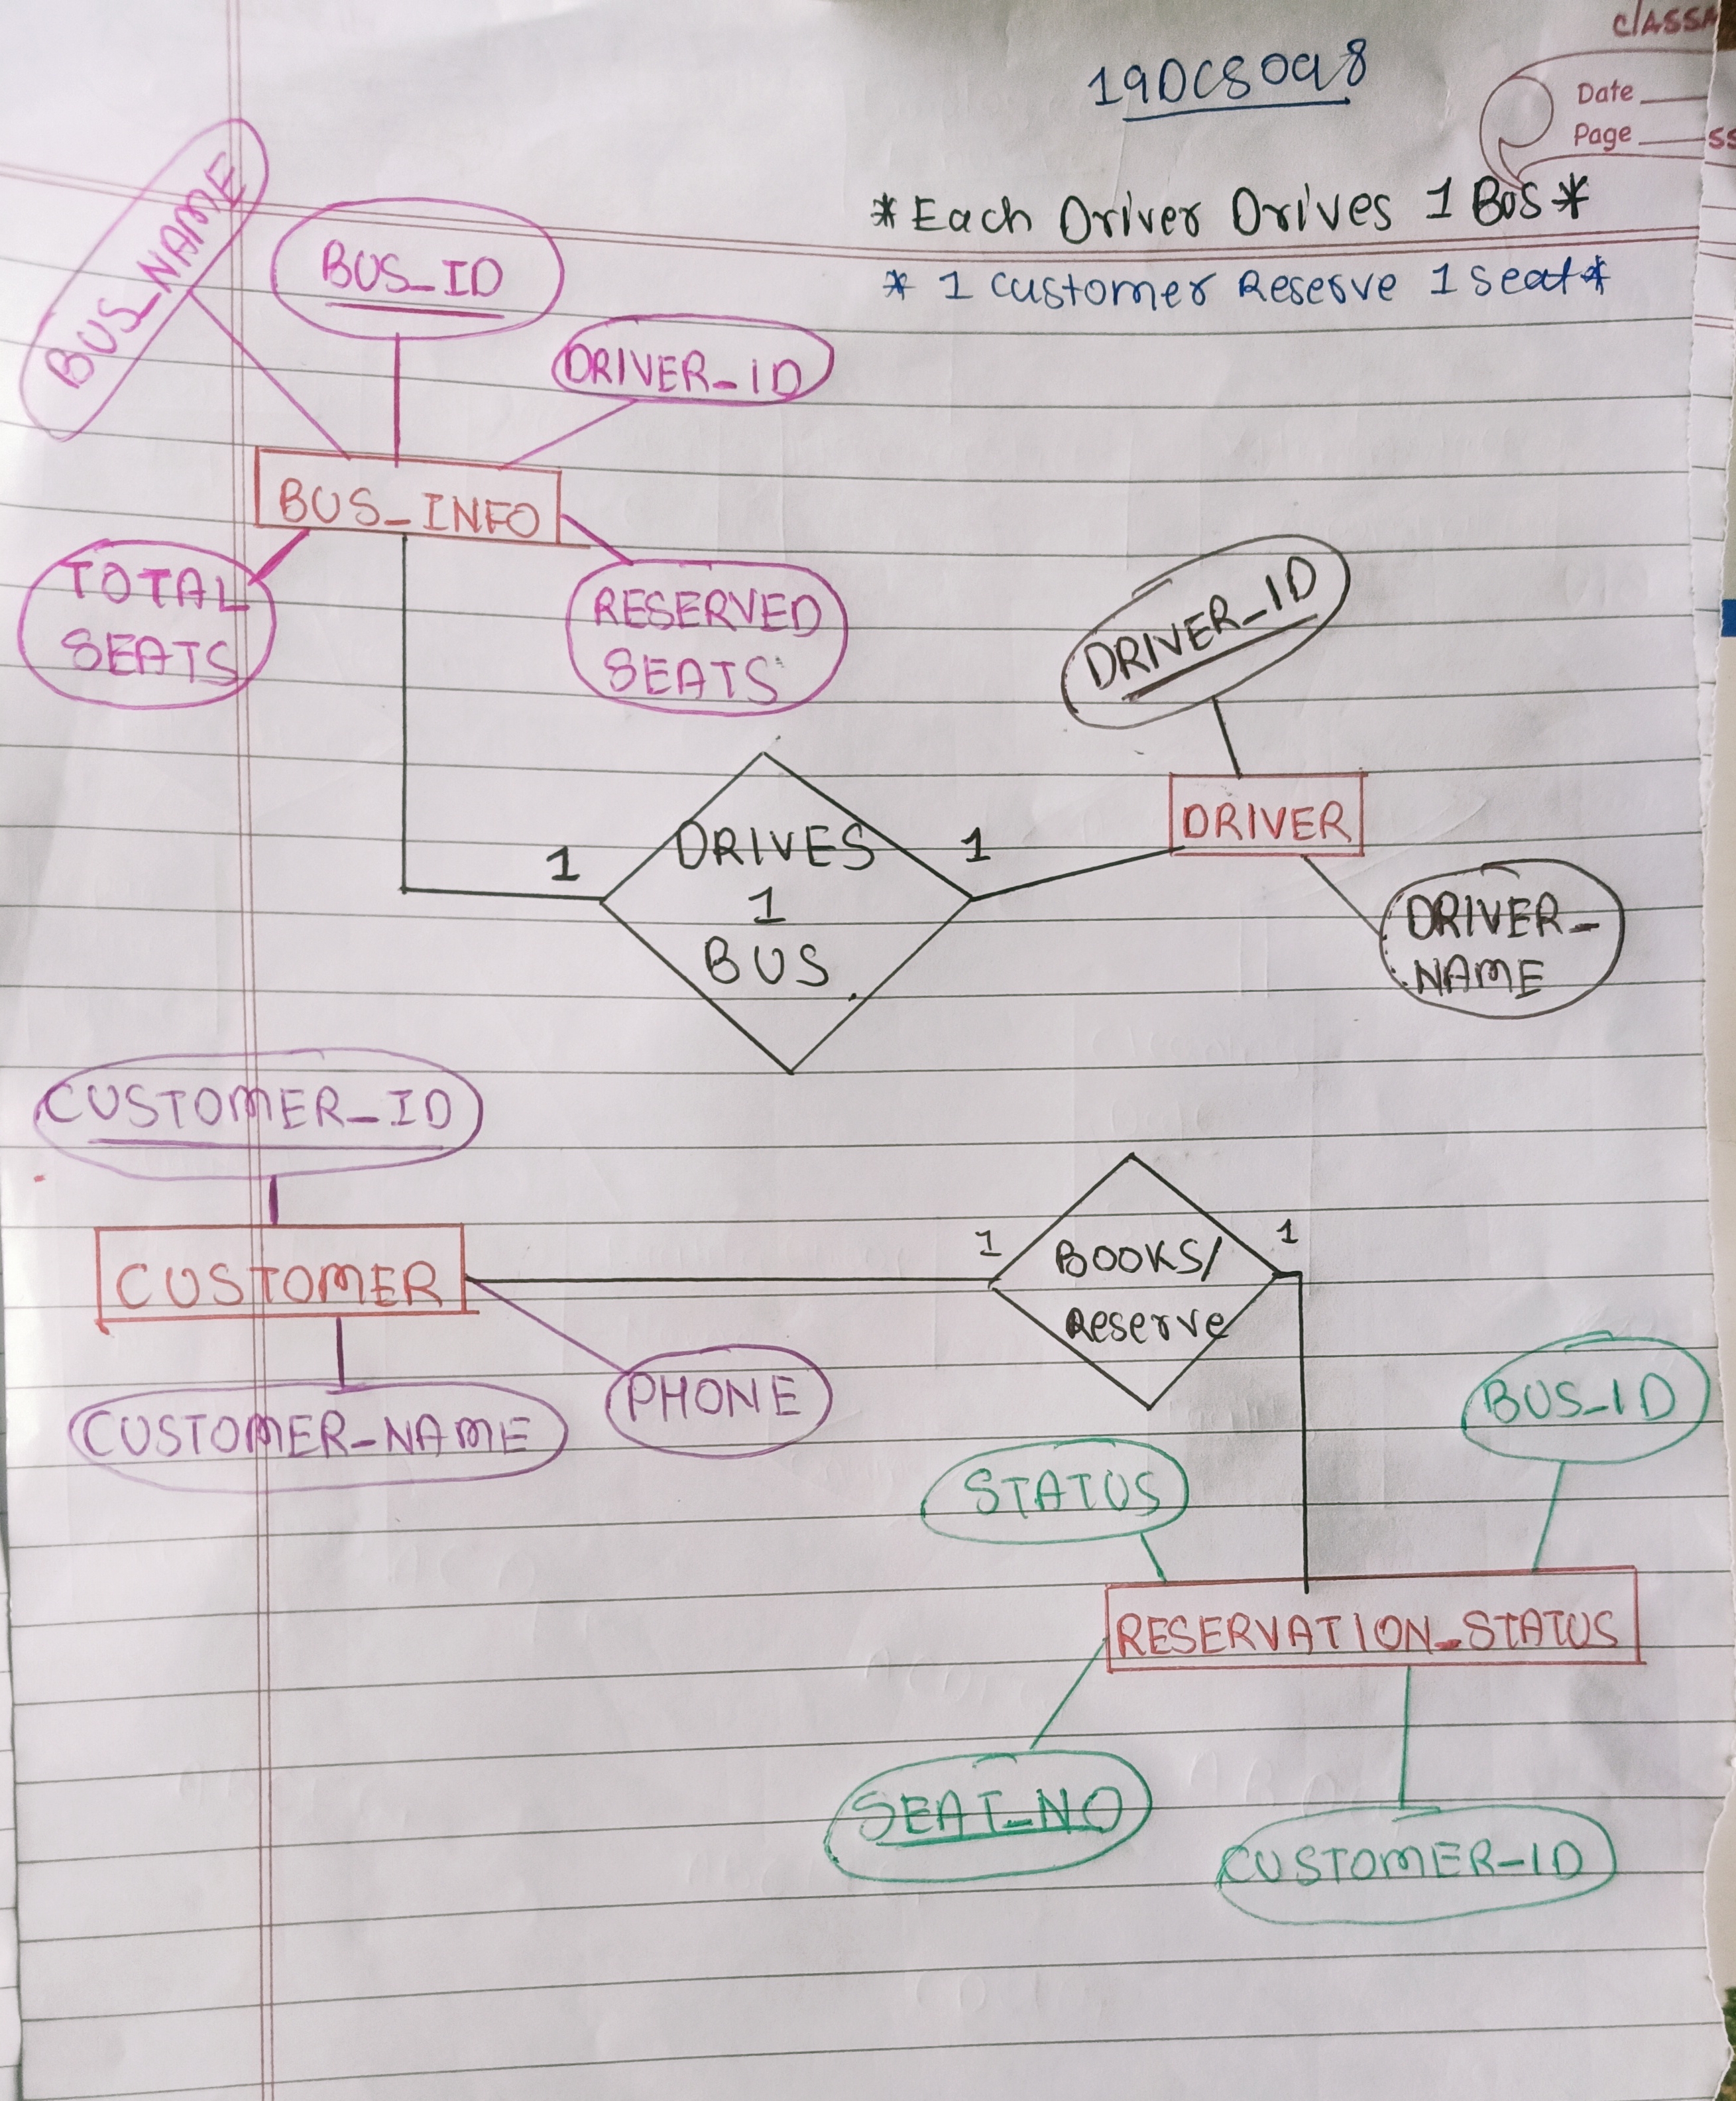 19DCS098
Date
Page
*Each Driver Drives 1 Bus*
* 1 Customer Reserve 1 seat*
BUS_NAME
BUS_ID
DRIVER_ID
BUS_INFO
TOTAL
SEATS
RESERVED
SEATS
DRIVER_ID
DRIVER
DRIVER_
NAME
1
DRIVES
1
BUS
1
CUSTOMER_ID
CUSTOMER
CUSTOMER_NAME
PHONE
1
BOOKS/
Reserve
1
BUS_ID
STATUS
RESERVATION_STATUS
SEAT_NO
CUSTOMER_ID